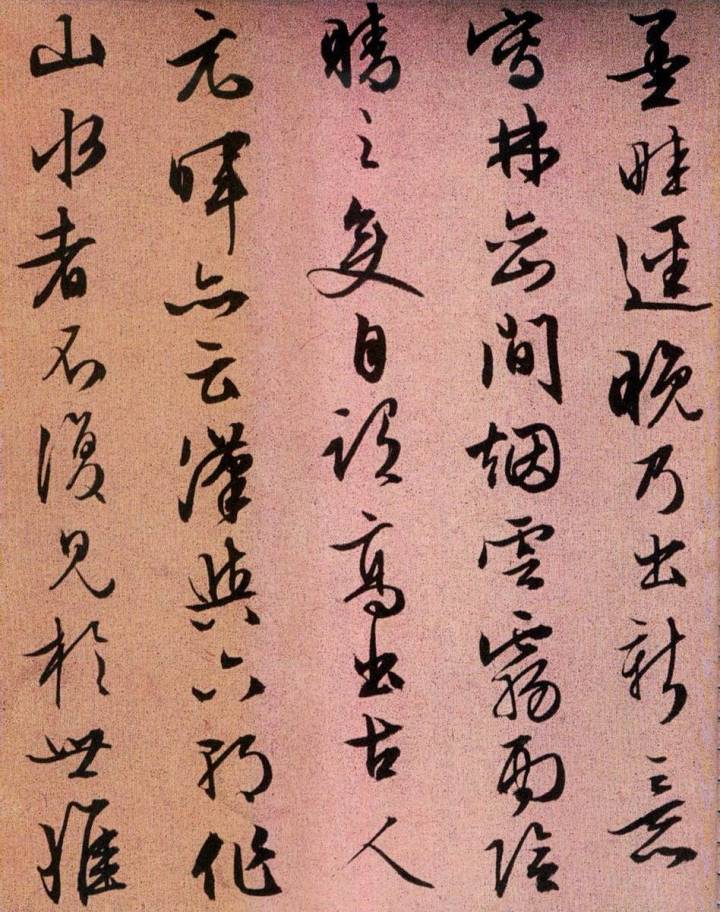 墨畦逕晚乃出新意
寫林峦間烟雲霧雨陰
晴之变自謂高出古人
元暉亦云漢與六朝作
山水者不復見於世惟